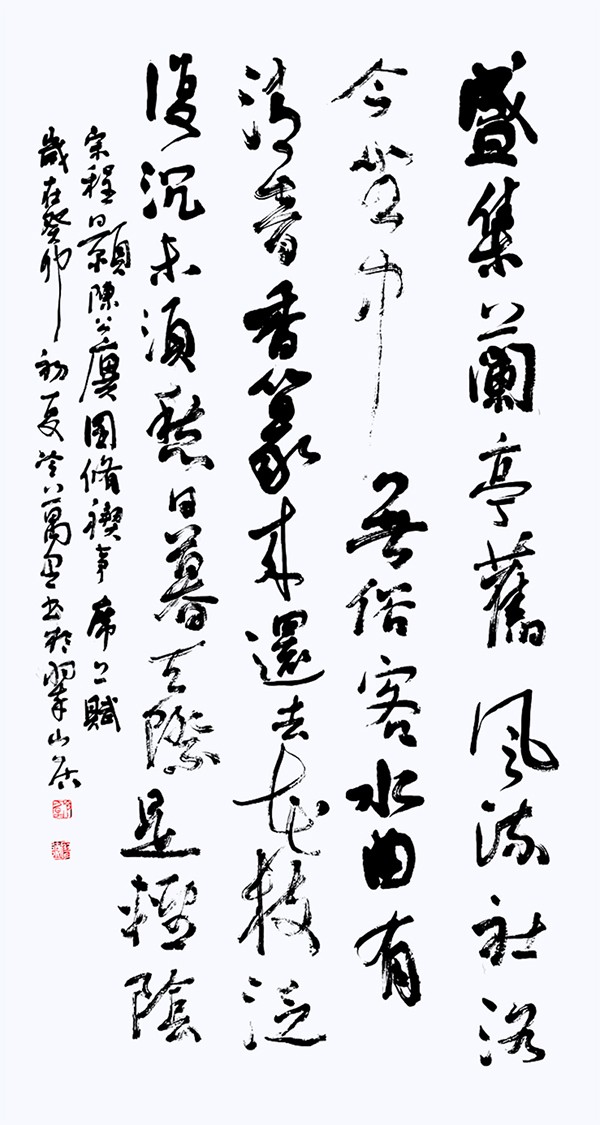 盛集蘭亭舊風流社洛
今坐中無俗客水曲有
清音香篆來還去花枝泛
復沉未須愁日暮天際是輕陰
宋程顥陳公廙園脩禊事席上賦
歲在癸卯初夏書於翠山居